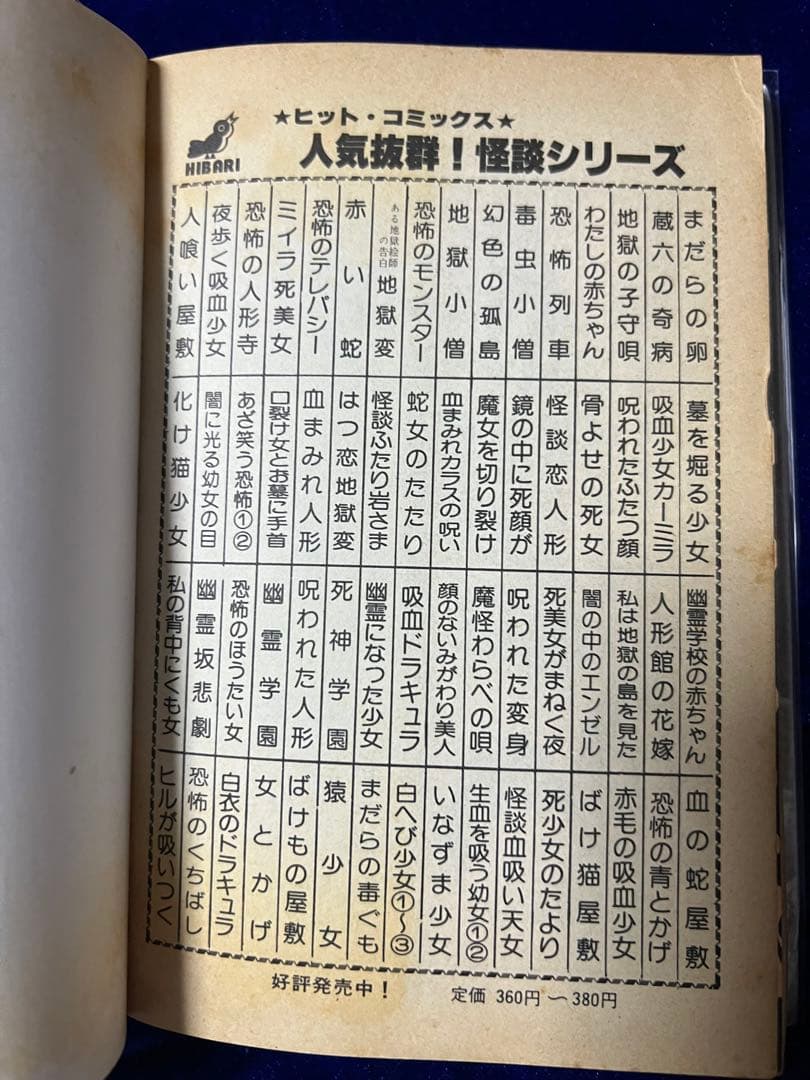 HIBARI
★ヒット・コミックス★
人気抜群！怪談シリーズ
まだらの卵
蔵六の奇病
地獄の子守唄
わたしの赤ちゃん
恐怖列車
毒虫小僧
幻色の孤島
地獄小僧
恐怖のモンスター
ある地獄絵師の告白 地獄変
赤い蛇
恐怖のテレパシー
ミイラ死美女
恐怖の人形寺
夜歩く吸血少女
人喰い屋敷
墓を堀る少女
吸血少女カーミラ
呪われたふたつ顔
骨よせの死女
怪談恋人形
鏡の中に死顔が
魔女を切り裂け
血まみれカラスの呪い
蛇女のたたり
怪談ふたり岩さま
はつ恋地獄変
血まみれ人形
口裂け女とお墓に手首
あざ笑う恐怖①②
闇に光る幼女の目
化け猫少女
幽霊学校の赤ちゃん
人形館の花嫁
私は地獄の島を見た
闇の中のエンゼル
死美女がまねく夜
呪われた変身
魔怪わらべの唄
顔のないみがわり美人
吸血ドラキュラ
幽霊になった少女
死神学園
呪われた人形
幽霊学園
恐怖のほうたい女
幽霊坂悲劇
私の背中にくも女
血の蛇屋敷
恐怖の青とかげ
赤毛の吸血少女
ばけ猫屋敷
死少女のたより
怪談血吸い天女
生血を吸う幼女①②
いなずま少女
白へび少女①〜③
まだらの毒ぐも
猿少女
ばけもの屋敷
女とかげ
白衣のドラキュラ
恐怖のくちばし
ヒルが吸いつく
好評発売中！
定価 360円〜380円